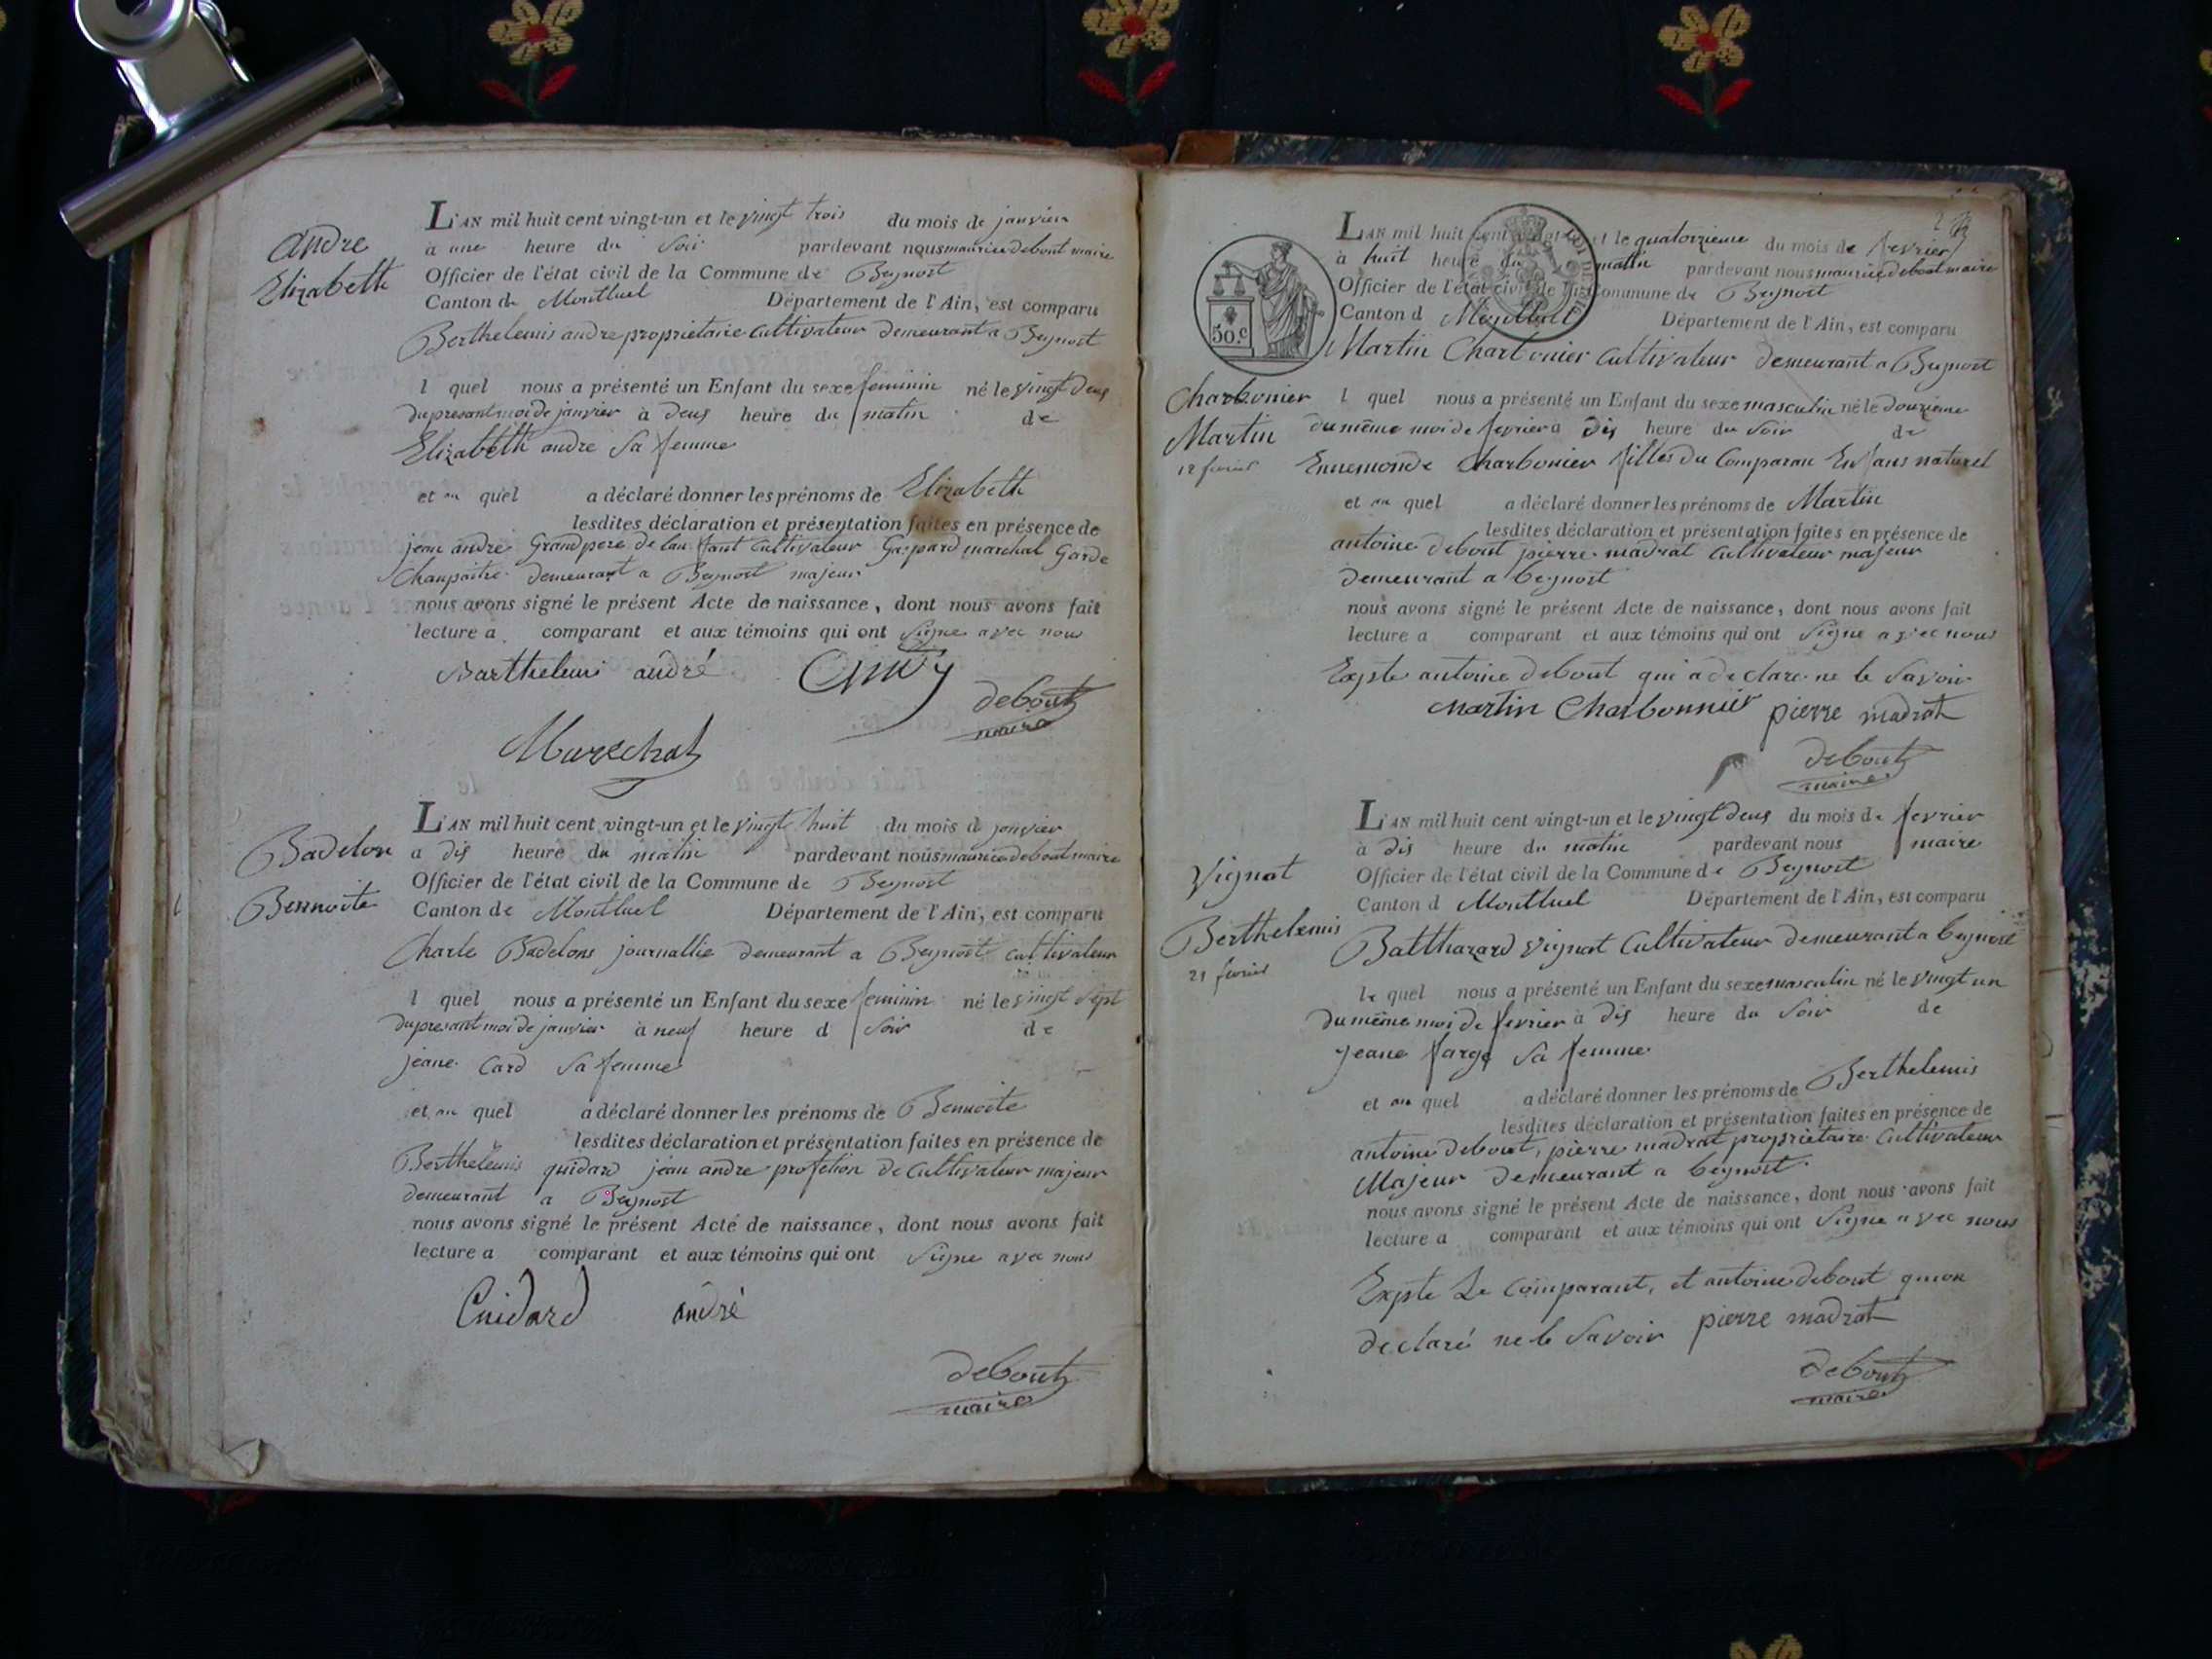 andre
Elizabeth
L'AN mil huit cent vingt-un et le vingt trois du mois de janvier
à une heure du soir pardevant nous maurice debout maire
Officier de l'état civil de la Commune de Beynost
Canton de Montluel Département de l'Ain, est comparu
Berthelemis andre proprietaire Cultivateur demeurant a Beynost
l quel nous a présenté un Enfant du sexe feminin né le vingt deus
du presant moi de janvier à deus heure du matin de
Elizabeth andre Sa femme
et au quel a déclaré donner les prénoms de Elizabeth
lesdites déclaration et présentation faites en présence de
jean andre Grand pere de lanfant Cultivateur Gaspard marechal Garde
Chanpaitre demeurant a Beynost majeur
nous avons signé le présent Acte de naissance, dont nous avons fait
lecture a comparant et aux témoins qui ont Signe avec nous
Barthelemi andré
debout
maire
Marechal
Badelon
Bennoite
L'AN mil huit cent vingt-un et le vingt huit du mois d janvier
a dis heure du matin pardevant nous maurice debout maire
Officier de l'état civil de la Commune de Beynost
Canton de Montluel Département de l'Ain, est comparu
Charle Badelons journallie demeurant a Beynost Cultivateur
l quel nous a présenté un Enfant du sexe feminin né le vingt Sept
du presant moi de janvier à neuf heure d Soir de
jeane Card Sa femme
et au quel a déclaré donner les prénoms de Bennoite
lesdites déclaration et présentation faites en présence de
Berthelemis guidard jean andre profetion de Cultivateur majeur
demeurant a Beynost
nous avons signé le présent Acte de naissance, dont nous avons fait
lecture a comparant et aux témoins qui ont Signe avec nous
Guidard andré
debout
maire
2
50.c
L'AN mil huit cent vingt et le quatorzieme du mois de fevrier
à huit heure du matin pardevant nous maurice debout maire
Officier de l'état civil de la Commune de Beynost
Canton d Montluel Département de l'Ain, est comparu
Martin Charbonier Cultivateur demeurant a Beynost
Charbonier
Martin
12 fevrier
l quel nous a présenté un Enfant du sexe masculin né le douzieme
du même moi de fevrier à dis heure du Soir de
Ennemonde Charbonier filles du Comparan Enfans naturel
et au quel a déclaré donner les prénoms de Martin
lesdites déclaration et présentation faites en présence de
antoine debout pierre madrat Cultivateur majeur
demeurant a beynost
nous avons signé le présent Acte de naissance, dont nous avons fait
lecture a comparant et aux témoins qui ont Signe avec nous
Expte antoine debout qui a declare ne le Savoir
Martin Charbonnier pierre madrat
debout
maire
Vignat
Berthelemis
21 fevrier
L'AN mil huit cent vingt-un et le vingt deus du mois de fevrier
à dis heure du matin pardevant nous maire
Officier de l'état civil de la Commune de Beynost
Canton d Montluel Département de l'Ain, est comparu
Balthazard vignat Cultivateur demeurant a beynost
le quel nous a présenté un Enfant du sexe masculin né le vingt un
du même moi de fevrier à dis heure du Soir de
jeane farge Sa femme
et au quel a déclaré donner les prénoms de Berthelemis
lesdites déclaration et présentation faites en présence de
antoine debout, pierre madrat proprietaire Cultivateur
Majeur demeurant a beynost
nous avons signé le présent Acte de naissance, dont nous avons fait
lecture a comparant et aux témoins qui ont Signe avec nous
Expte Le Comparant, et antoine debout qui on
declaré ne le Savoir pierre madrat
debout
maire